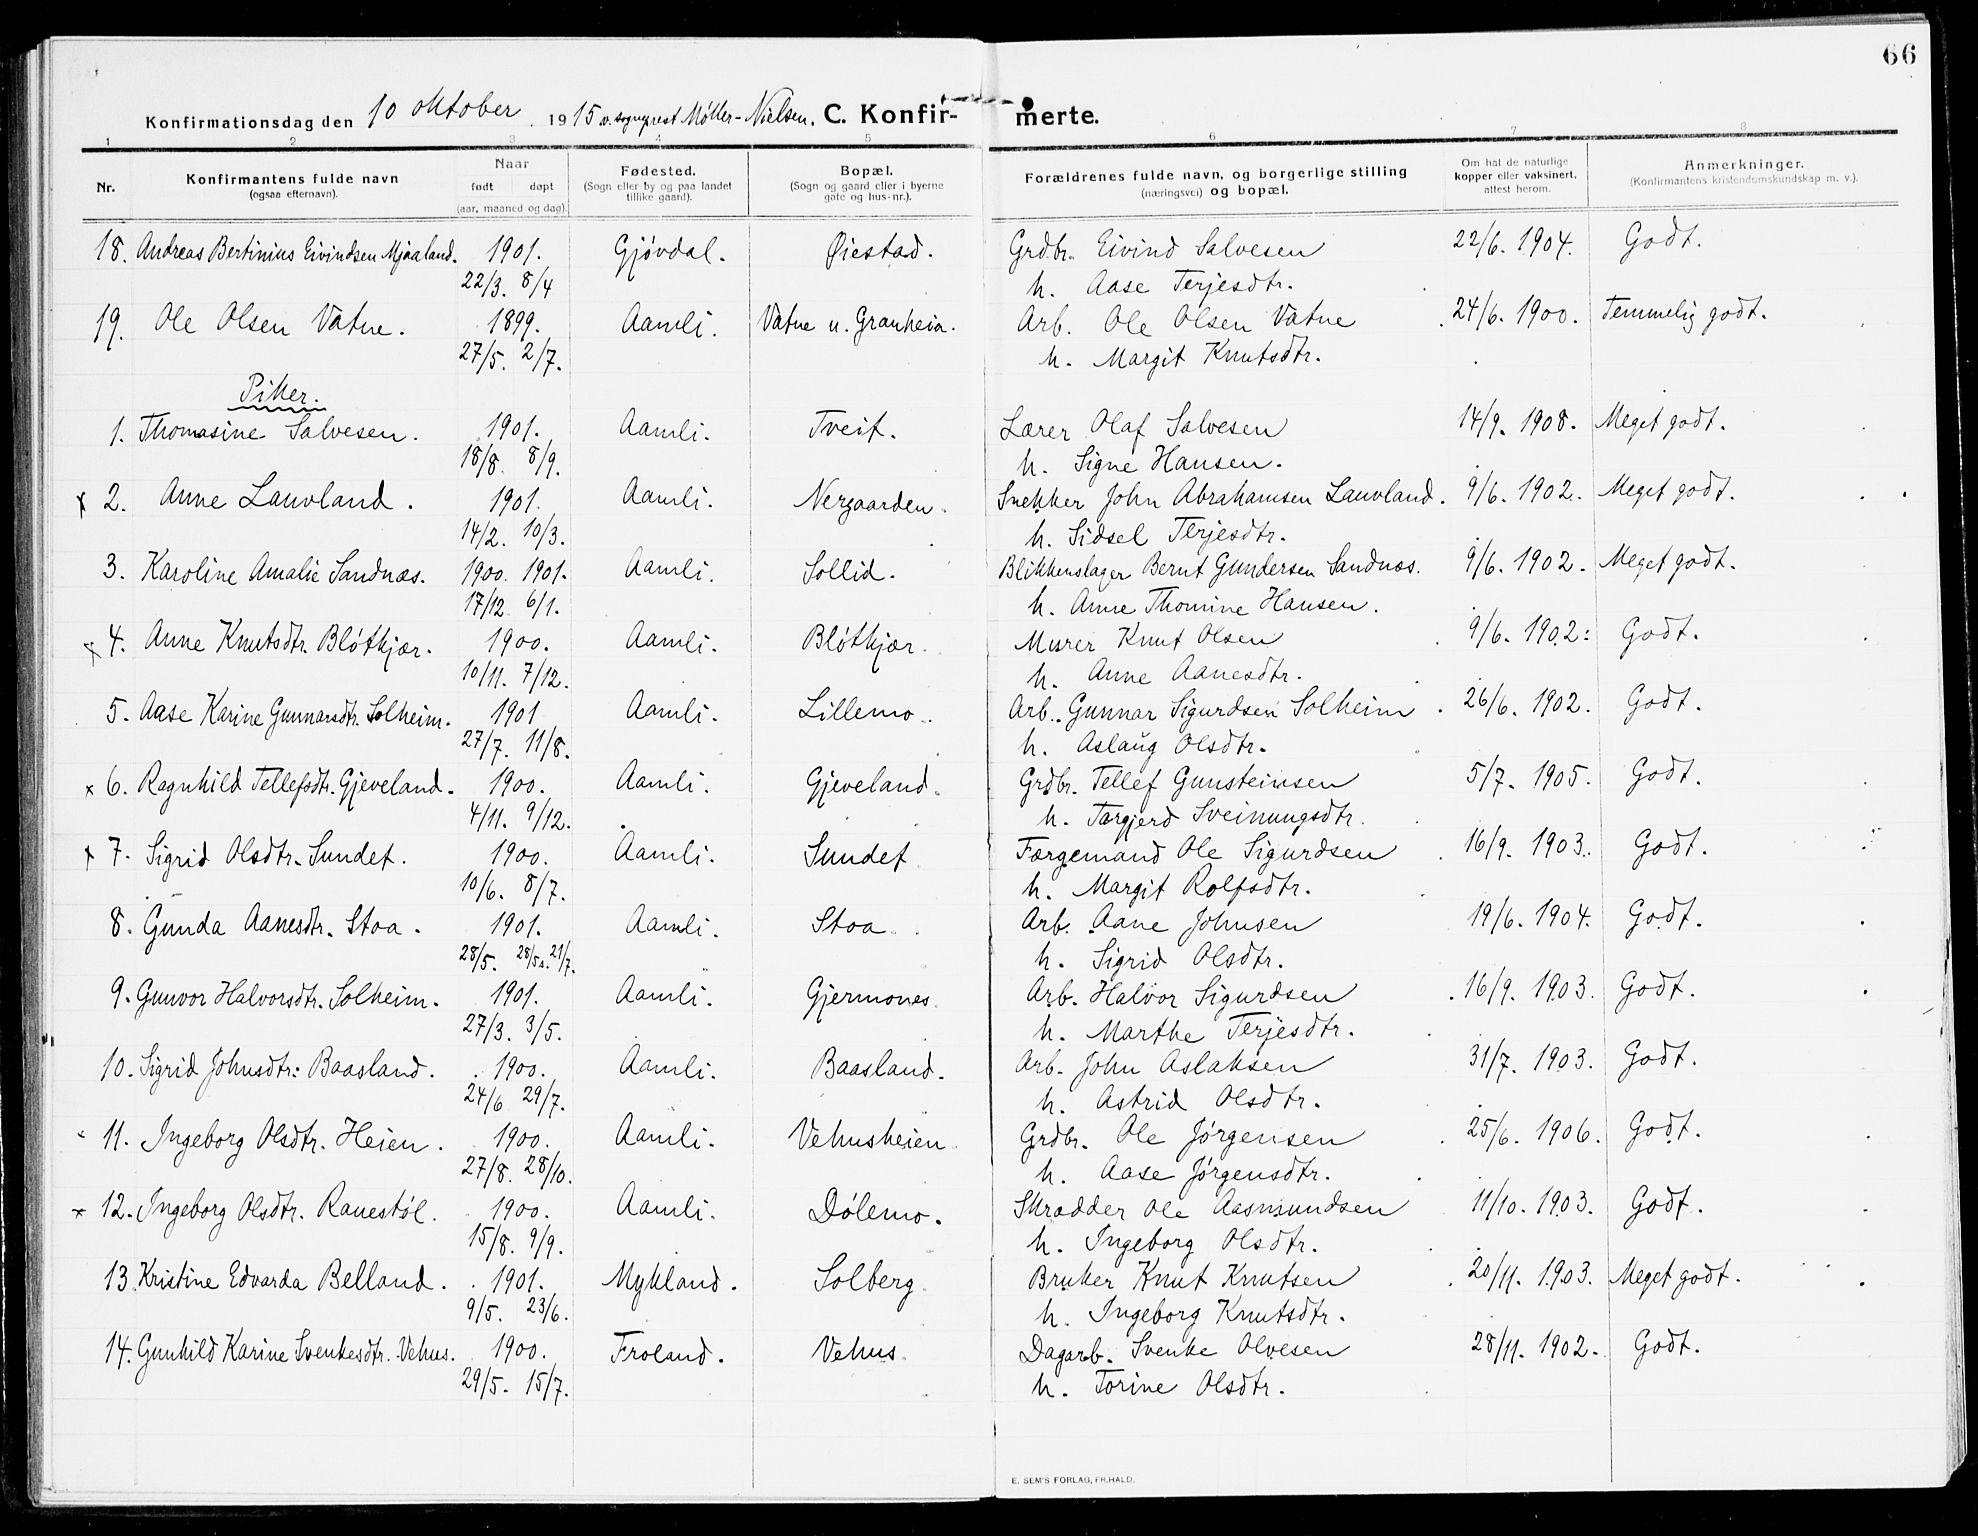 66
Konfirmationsdag den 10 oktober 1915 v. sogneprest Møller-Nielsen. C. Konfir- merte.
1 2 3 4 5 6 7 8
Nr. Konfirmantens fulde navn (ogsaa efternavn). Naar født døpt (aar, maaned og dag). Fødested. (Sogn eller by og paa landet tillike gaard). Bopæl. (Sogn og gaard eller i byerne gate og hus-nr.). Forældrenes fulde navn, og borgerlige stilling (næringsvei) og bopæl. Om hat de naturlige kopper eller vaksinert, attest herom. Anmerkninger. (Konfirmantens kristendomskundskap m. v.).
18. Andreas Bertinius Eivindsen Mjaaland. 1901. Gjøvdal. Øiestad. Grdbr. Eivind Salvesen 22/6. 1904. Godt.
22/3. 8/4 h. Aase Terjesdtr.
19. Ole Olsen Vatne. 1899. Aamli. Vatne u. Granheim. Arb. Ole Olsen Vatne 24/6. 1900. Temmelig godt.
27/5. 2/7. h. Margit Knutsdtr.
Piker.
1. Thomasine Salvesen. 1901. Aamli. Tveit. Lærer Olaf Salvesen 14/9. 1908. Meget godt.
18/8. 8/9. h. Signe Hansen.
x 2. Anne Lauvland. 1901. Aamli. Nergaarden. Snekker John Abrahamsen Lauvland. 9/6. 1902. Meget godt.
14/2. 10/3. h. Sidsel Terjesdtr.
3. Karoline Amalie Sandnæs. 1900. 1901. Aamli. Sollid. Blikkenslager Bernt Gundersen Sandnæs. 9/6. 1902. Meget godt.
17/12 6/1. h. Anne Thomine Hansen.
x 4. Anne Knutsdtr. Bløtkjær. 1900. Aamli. Bløtkjær. Murer Knut Olsen 9/6. 1902. Godt.
10/11. 7/12. h. Anne Aanesdtr.
5. Aase Karine Gunnarsdtr. Solheim. 1901 Aamli. Lillemo. Arb. Gunnar Sigurdsen Solheim 26/6. 1902. Godt.
27/7. 11/8. h. Aslaug Olsdtr.
x 6. Ragnhild Tellefsdtr. Gjeveland. 1900. Aamli. Gjeveland. Grdbr. Tellef Gunsteinsen 5/7. 1905. Godt.
4/11. 9/12. h. Targjerd Sveinungsdtr.
x 7. Sigrid Olsdtr. Sundet. 1900. Aamli. Sundet Færgemand Ole Sigurdsen 16/9. 1903. Godt.
10/6. 8/7. h. Margit Rolfsdtr.
8. Gunda Aanesdtr. Stoa. 1901. Aamli. Stoa. Arb. Aane Johnsen 19/6. 1904. Godt.
28/5. 28/5 21/7. h. Sigrid Olsdtr.
9. Gunvor Halvorsdtr. Solheim. 1901. Aamli. Gjermones. Arb. Halvor Sigurdsen 16/9. 1903. Godt.
27/3. 3/5. h. Marthe Terjesdtr.
10. Sigrid Johnsdtr. Baasland. 1900. Aamli. Baasland. Arb. John Aslaksen 31/7. 1903. Godt.
24/6 29/7. h. Astrid Olsdtr.
11. Ingeborg Olsdtr. Heien. 1900. Aamli. Vehusheien Grdbr. Ole Jørgensen 25/6. 1906. Godt.
27/8. 28/10. h. Aase Jørgensdtr.
x 12. Ingeborg Olsdtr. Ranestøl. 1900. Aamli. Dølemo. Skrædder Ole Aasmundsen 11/10. 1903. Godt.
15/8. 9/9. h. Ingeborg Olsdtr.
13. Kristine Edvarda Belland. 1901. Mykland. Solberg. Bruker Knut Knutsen 20/11. 1903. Meget godt.
9/5. 23/6. h. Ingeborg Knutsdtr.
14. Gunhild Karine Svenkesdtr. Vehus. 1900. Froland. Vehus. Dagarb. Svenke Olvesen 28/11. 1902. Godt.
29/5. 15/7. h. Torine Olsdtr.
E. SEM'S FORLAG, FR.HALD.